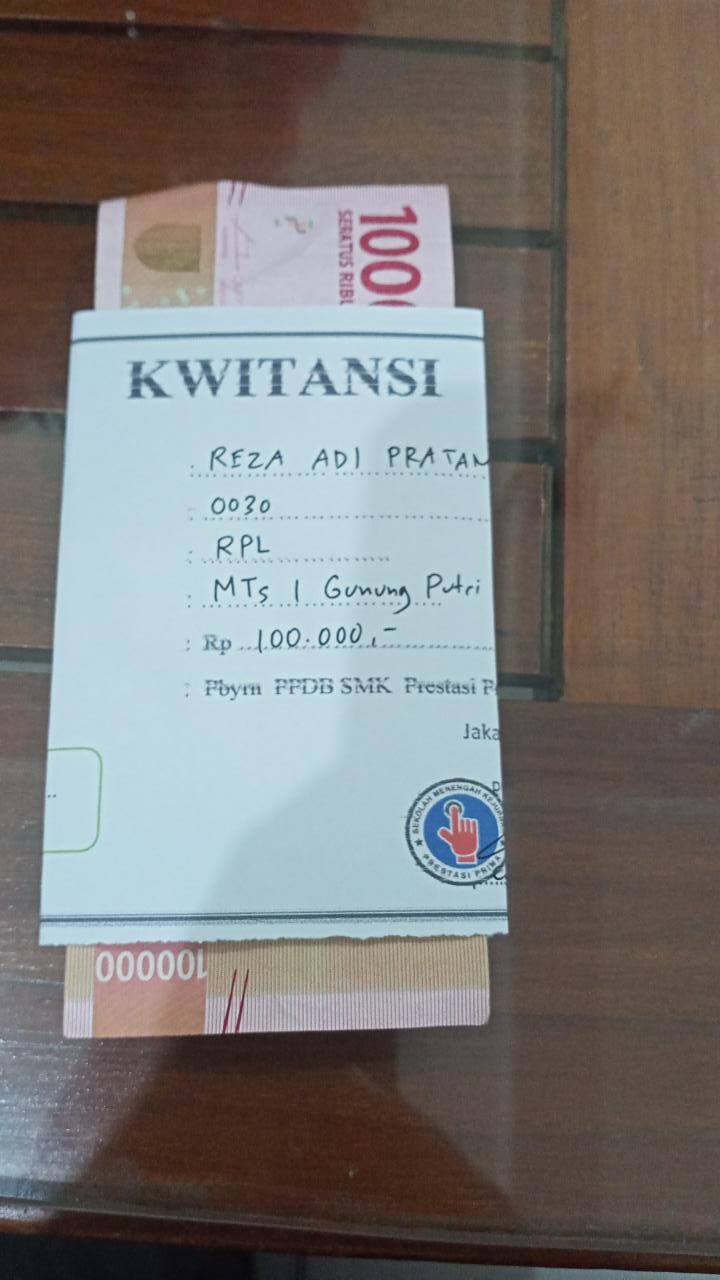 100
SERATUS RIBU
KWITANSI
: REZA ADI PRATAM
: 0030
: RPL
: MTs 1 Gunung Putri
: Rp 100.000,-
: Pbyrn PPDB SMK Prestasi P
Jaka
SEKOLAH MENENGAH KEJURU
PRESTASI PRIMA
100000